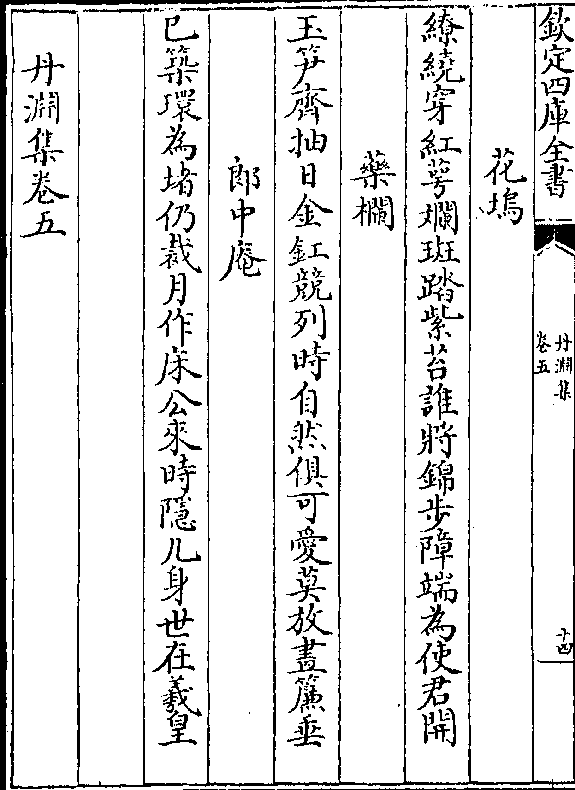 欽定四庫全書
丹淵集
卷五
十四
花塢
繚繞穿紅萼斕斑踏紫苔誰將錦步障端為使君開
藥欄
玉笋齊抽日金釭競列時自然俱可愛莫放畫簾垂
郎中庵
已築環為堵仍裁月作床公來時隱几身世在羲皇
丹淵集卷五